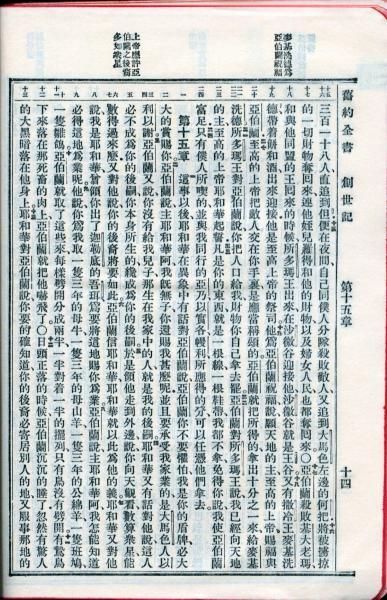 麥基洗德為
亞伯蘭祝福
上帝應許亞
伯蘭之後裔
多如
舊約全書 創世記 第十五章 十四
三百一十八人直追到但便在夜間自己同僕人分隊殺敗敵人又追到大馬色左邊的何把將被擄掠
的一切財物奪囘來連他姪兒羅得和他的財物以及婦女人民也都奪囘來〇亞伯蘭殺敗基大老瑪
和與他同盟的王囘來的時候所多瑪王出來在沙微谷迎接他沙微谷就是王谷又有撒冷王麥基洗
德帶着餅和酒出來迎接他是至高上帝的祭司他為亞伯蘭祝福說願天地的主至高的上帝賜福與
亞伯蘭至高的上帝把敵人交在你手裏是應當稱頌的亞伯蘭就把所得的拿出十分之一來給麥基
洗德所多瑪王對亞伯蘭說你把人口給我財物你自己拿去罷亞伯蘭對所多瑪王說我已經向天地
的主至高的上帝耶和華起誓凡是你的東西就是一根線一根鞋帶我都不拿免得你說我使亞伯蘭
富足只有僕人所喫的並與我同行的亞乃以實各幔利所應得的分可以任憑他們拿去
第十五章 這事以後耶和華在異象中有話對亞伯蘭說亞伯蘭你不要懼怕我是你的盾牌必大
大的賞賜你亞伯蘭說主耶和華阿我旣無子你還賜我甚麼呢並且要承受我家業的是大馬色人以
利以謝亞伯蘭又說你沒有給我兒子那生在我家中的人就是我的後嗣耶和華又有話對他說這人
必不成為你的後嗣你本身所生的纔成為你的後嗣於是領他走到外邊說你向天觀看數算衆星能
數得過來麼又對他說你的後裔將要如此亞伯蘭信耶和華耶和華就以此為他的義耶和華又對他
說我是耶和華曾領你出了迦勒底的吾珥為要將這地賜你為業亞伯蘭說主耶和華阿我怎能知道
必得這地為業呢他說你為我取一隻三年的母牛一隻三年的母山羊一隻三年的公綿羊一隻班鳩
一隻雛鴿亞伯蘭就取了這些來每樣劈開分成兩半一半對着一半的擺列只有鳥沒有劈開有鷙鳥
下來落在那死畜的肉上亞伯蘭就把他嚇飛了〇日頭正落的時候亞伯蘭沉沉的睡了忽然有驚人
的大黑暗落在他身上耶和華對亞伯蘭說你要的確知道你的後裔必寄居別人的地又服事那地的